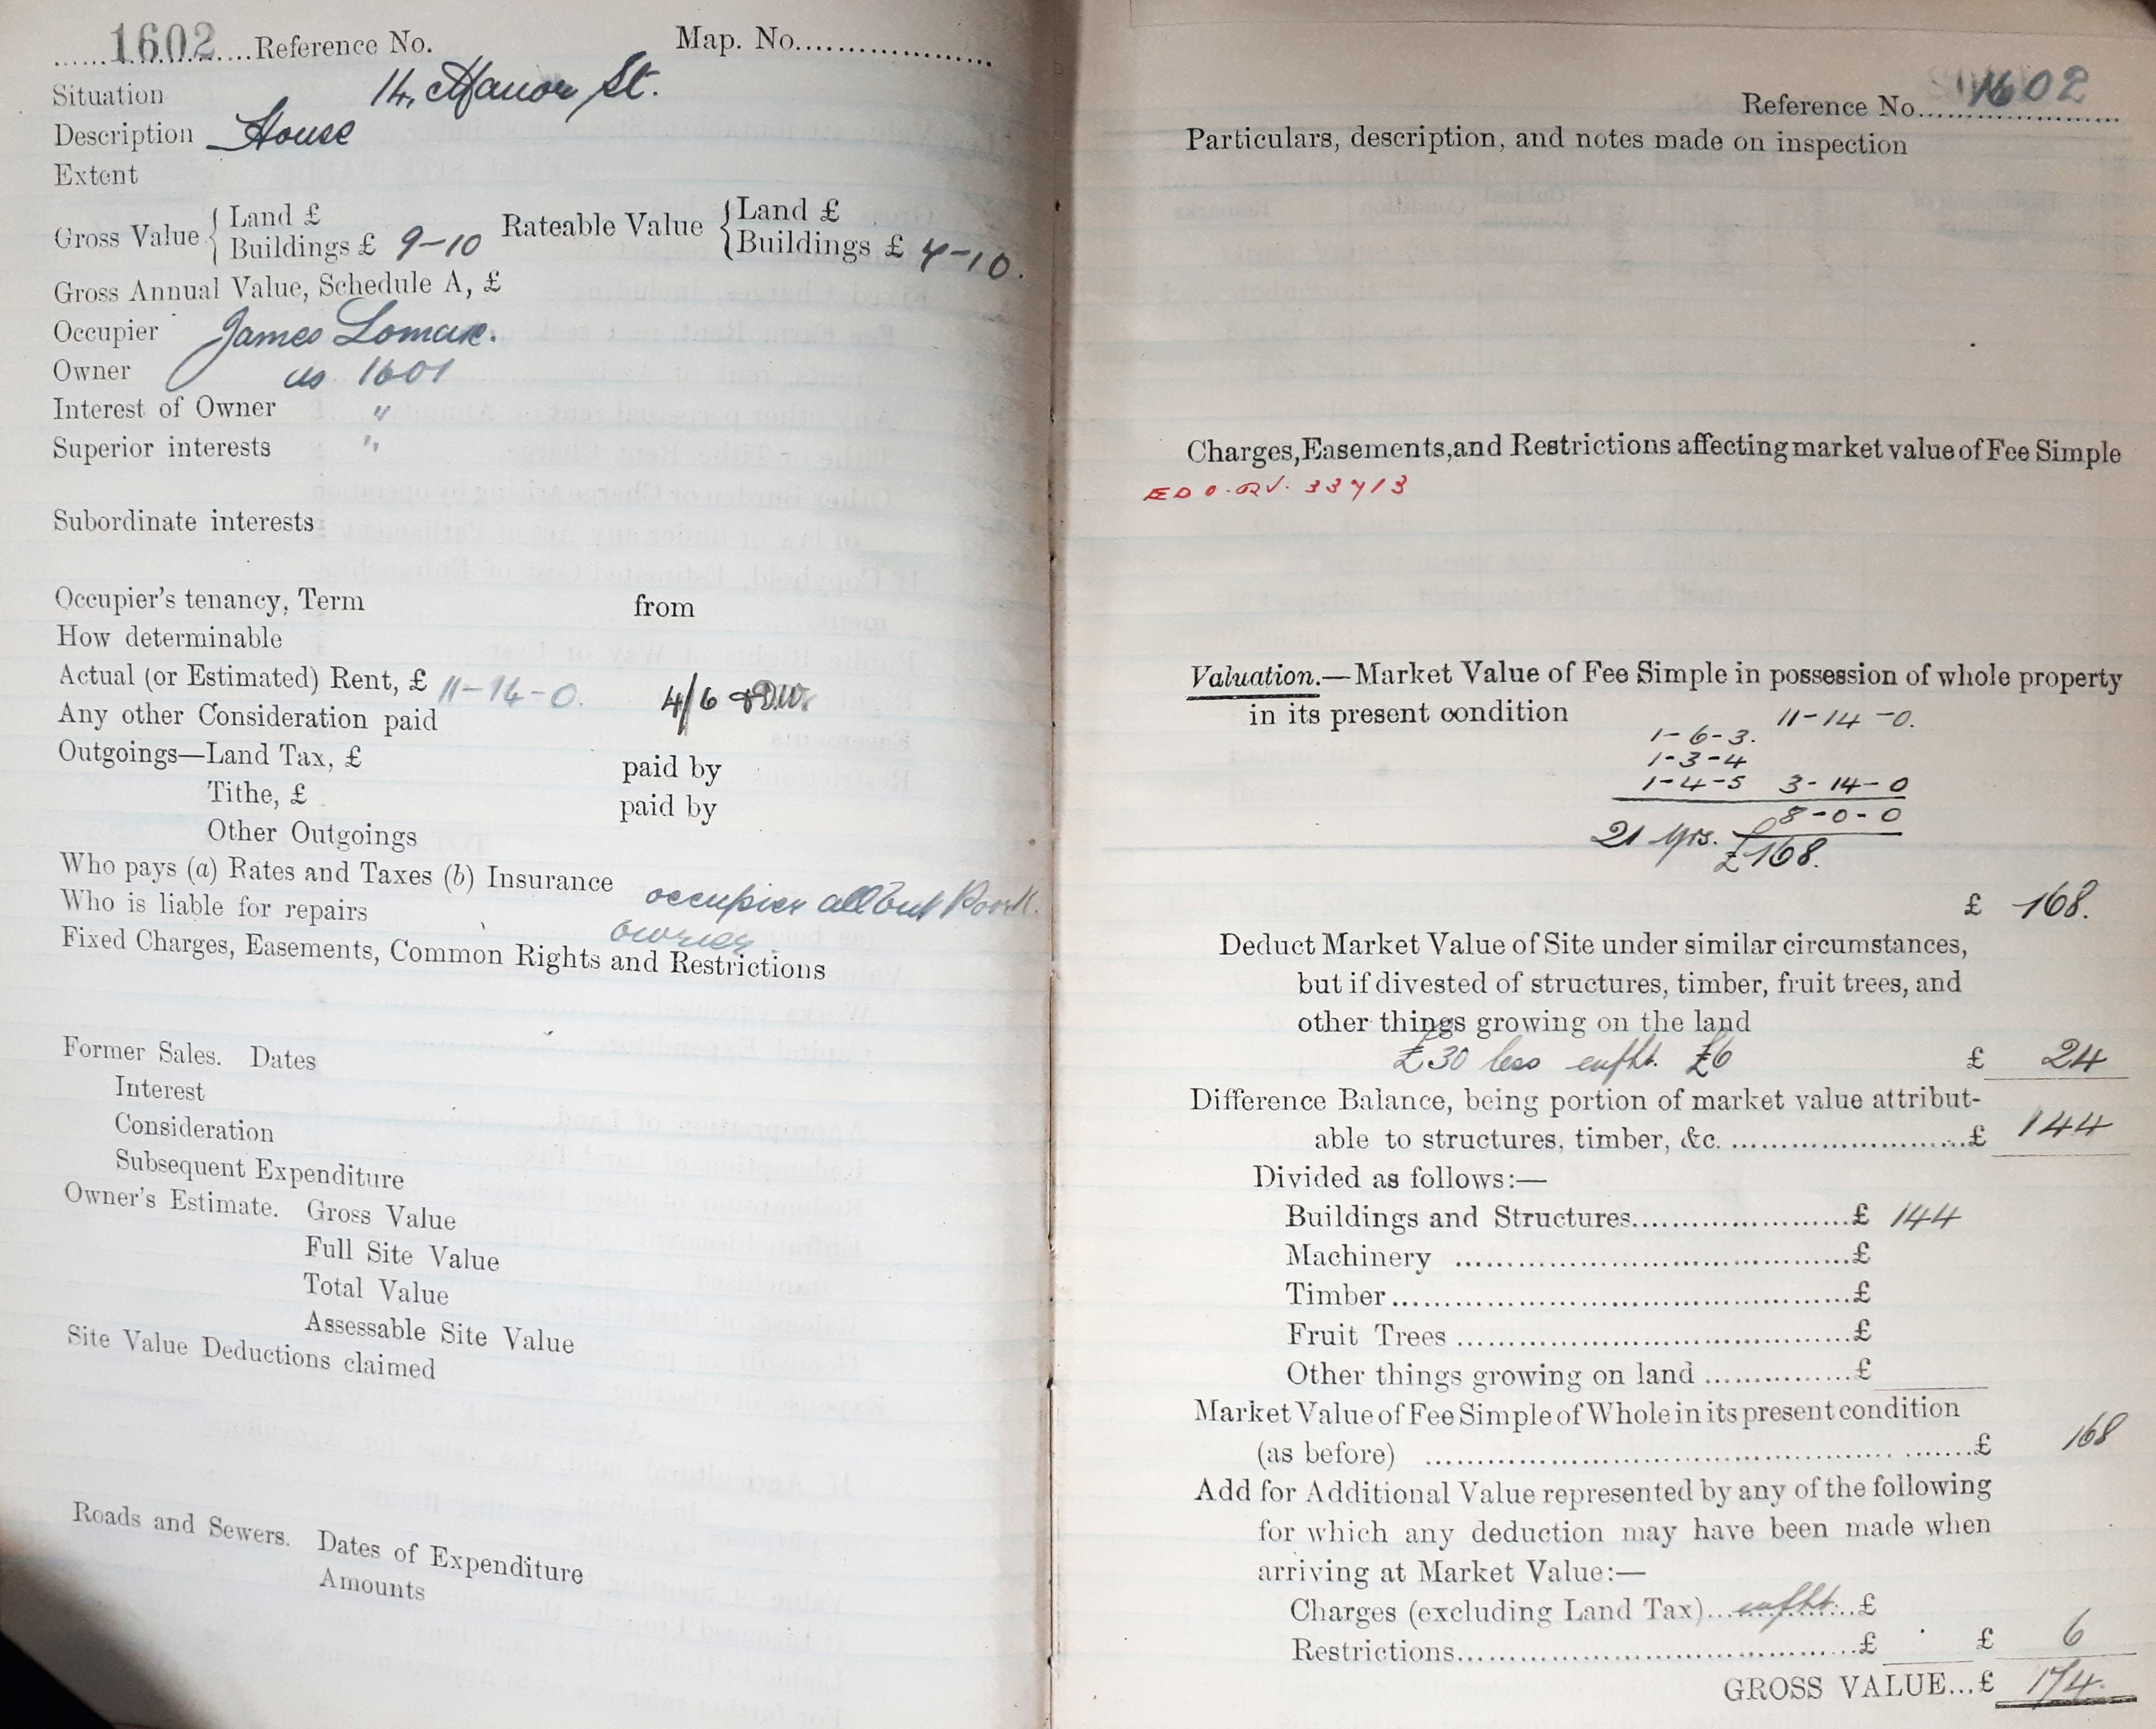 1602 Reference No. Map. No.
Situation 14, Manor St.
Description House
Extent
Gross Value { Land £
Buildings £ 9-10
Rateable Value { Land £
Buildings £ 7-10.
Gross Annual Value, Schedule A, £
Occupier James Lomax.
Owner as 1601
Interest of Owner "
Superior interests "
Subordinate interests
Occupier's tenancy, Term from
How determinable
Actual (or Estimated) Rent, £ 11-14-0. 4/6
Any other Consideration paid
Outgoings—Land Tax, £ paid by
Tithe, £ paid by
Other Outgoings
Who pays (a) Rates and Taxes (b) Insurance occupier all but
Who is liable for repairs owner.
Fixed Charges, Easements, Common Rights and Restrictions
Former Sales. Dates
Interest
Consideration
Subsequent Expenditure
Owner's Estimate. Gross Value
Full Site Value
Total Value
Assessable Site Value
Site Value Deductions claimed
Roads and Sewers. Dates of Expenditure
Amounts
Reference No. 1602
Particulars, description, and notes made on inspection
Charges, Easements, and Restrictions affecting market value of Fee Simple
33713
Valuation.—Market Value of Fee Simple in possession of whole property
in its present condition 11-14-0.
1-6-3.
1-3-4
1-4-5 3-14-0
8-0-0
21 yrs. £168.
£ 168.
Deduct Market Value of Site under similar circumstances,
but if divested of structures, timber, fruit trees, and
other things growing on the land
£30 less enfht. £6 £ 24
Difference Balance, being portion of market value attribut-
able to structures, timber, &c. £ 144
Divided as follows:—
Buildings and Structures £ 144
Machinery £
Timber £
Fruit Trees £
Other things growing on land £
Market Value of Fee Simple of Whole in its present condition
(as before) £ 168
Add for Additional Value represented by any of the following
for which any deduction may have been made when
arriving at Market Value:—
Charges (excluding Land Tax) enfht. £
Restrictions £ £ 6
GROSS VALUE...£ 174.